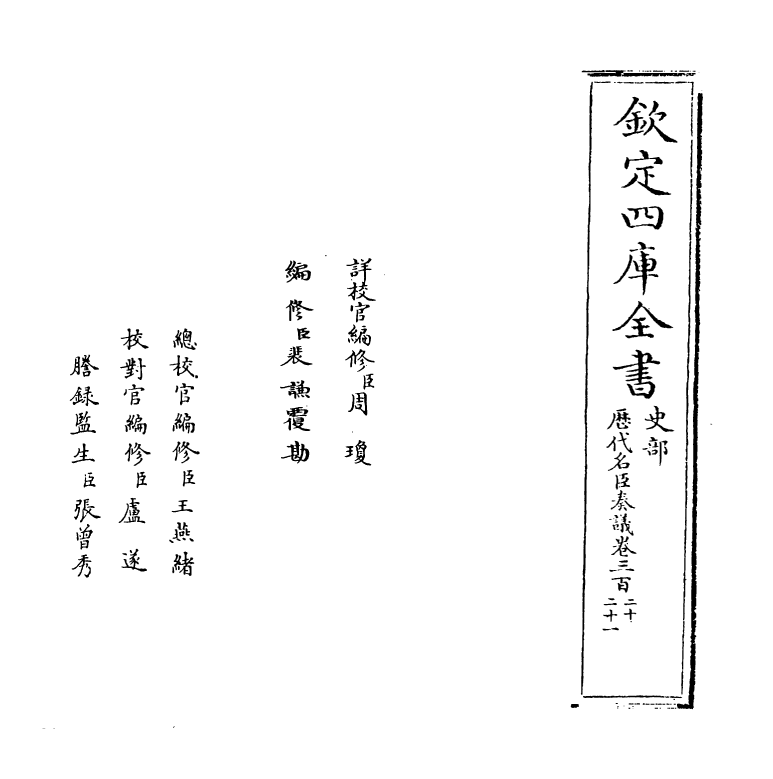 欽定四庫全書
史部
歷代名臣奏議卷三百二十
二十一
詳校官編修臣周瓊
編修臣裴謙覆勘
總校官編修臣王燕緒
校對官編修臣盧遂
謄錄監生臣張曾秀